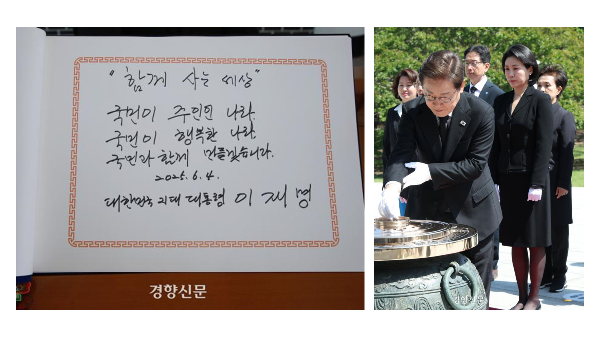 "함께 사는 세상"
국민이 주인인 나라,
국민이 행복한 나라,
국민과 함께 만들겠습니다.
2025. 6. 4.
대한민국 21대 대통령 이재명
경향신문